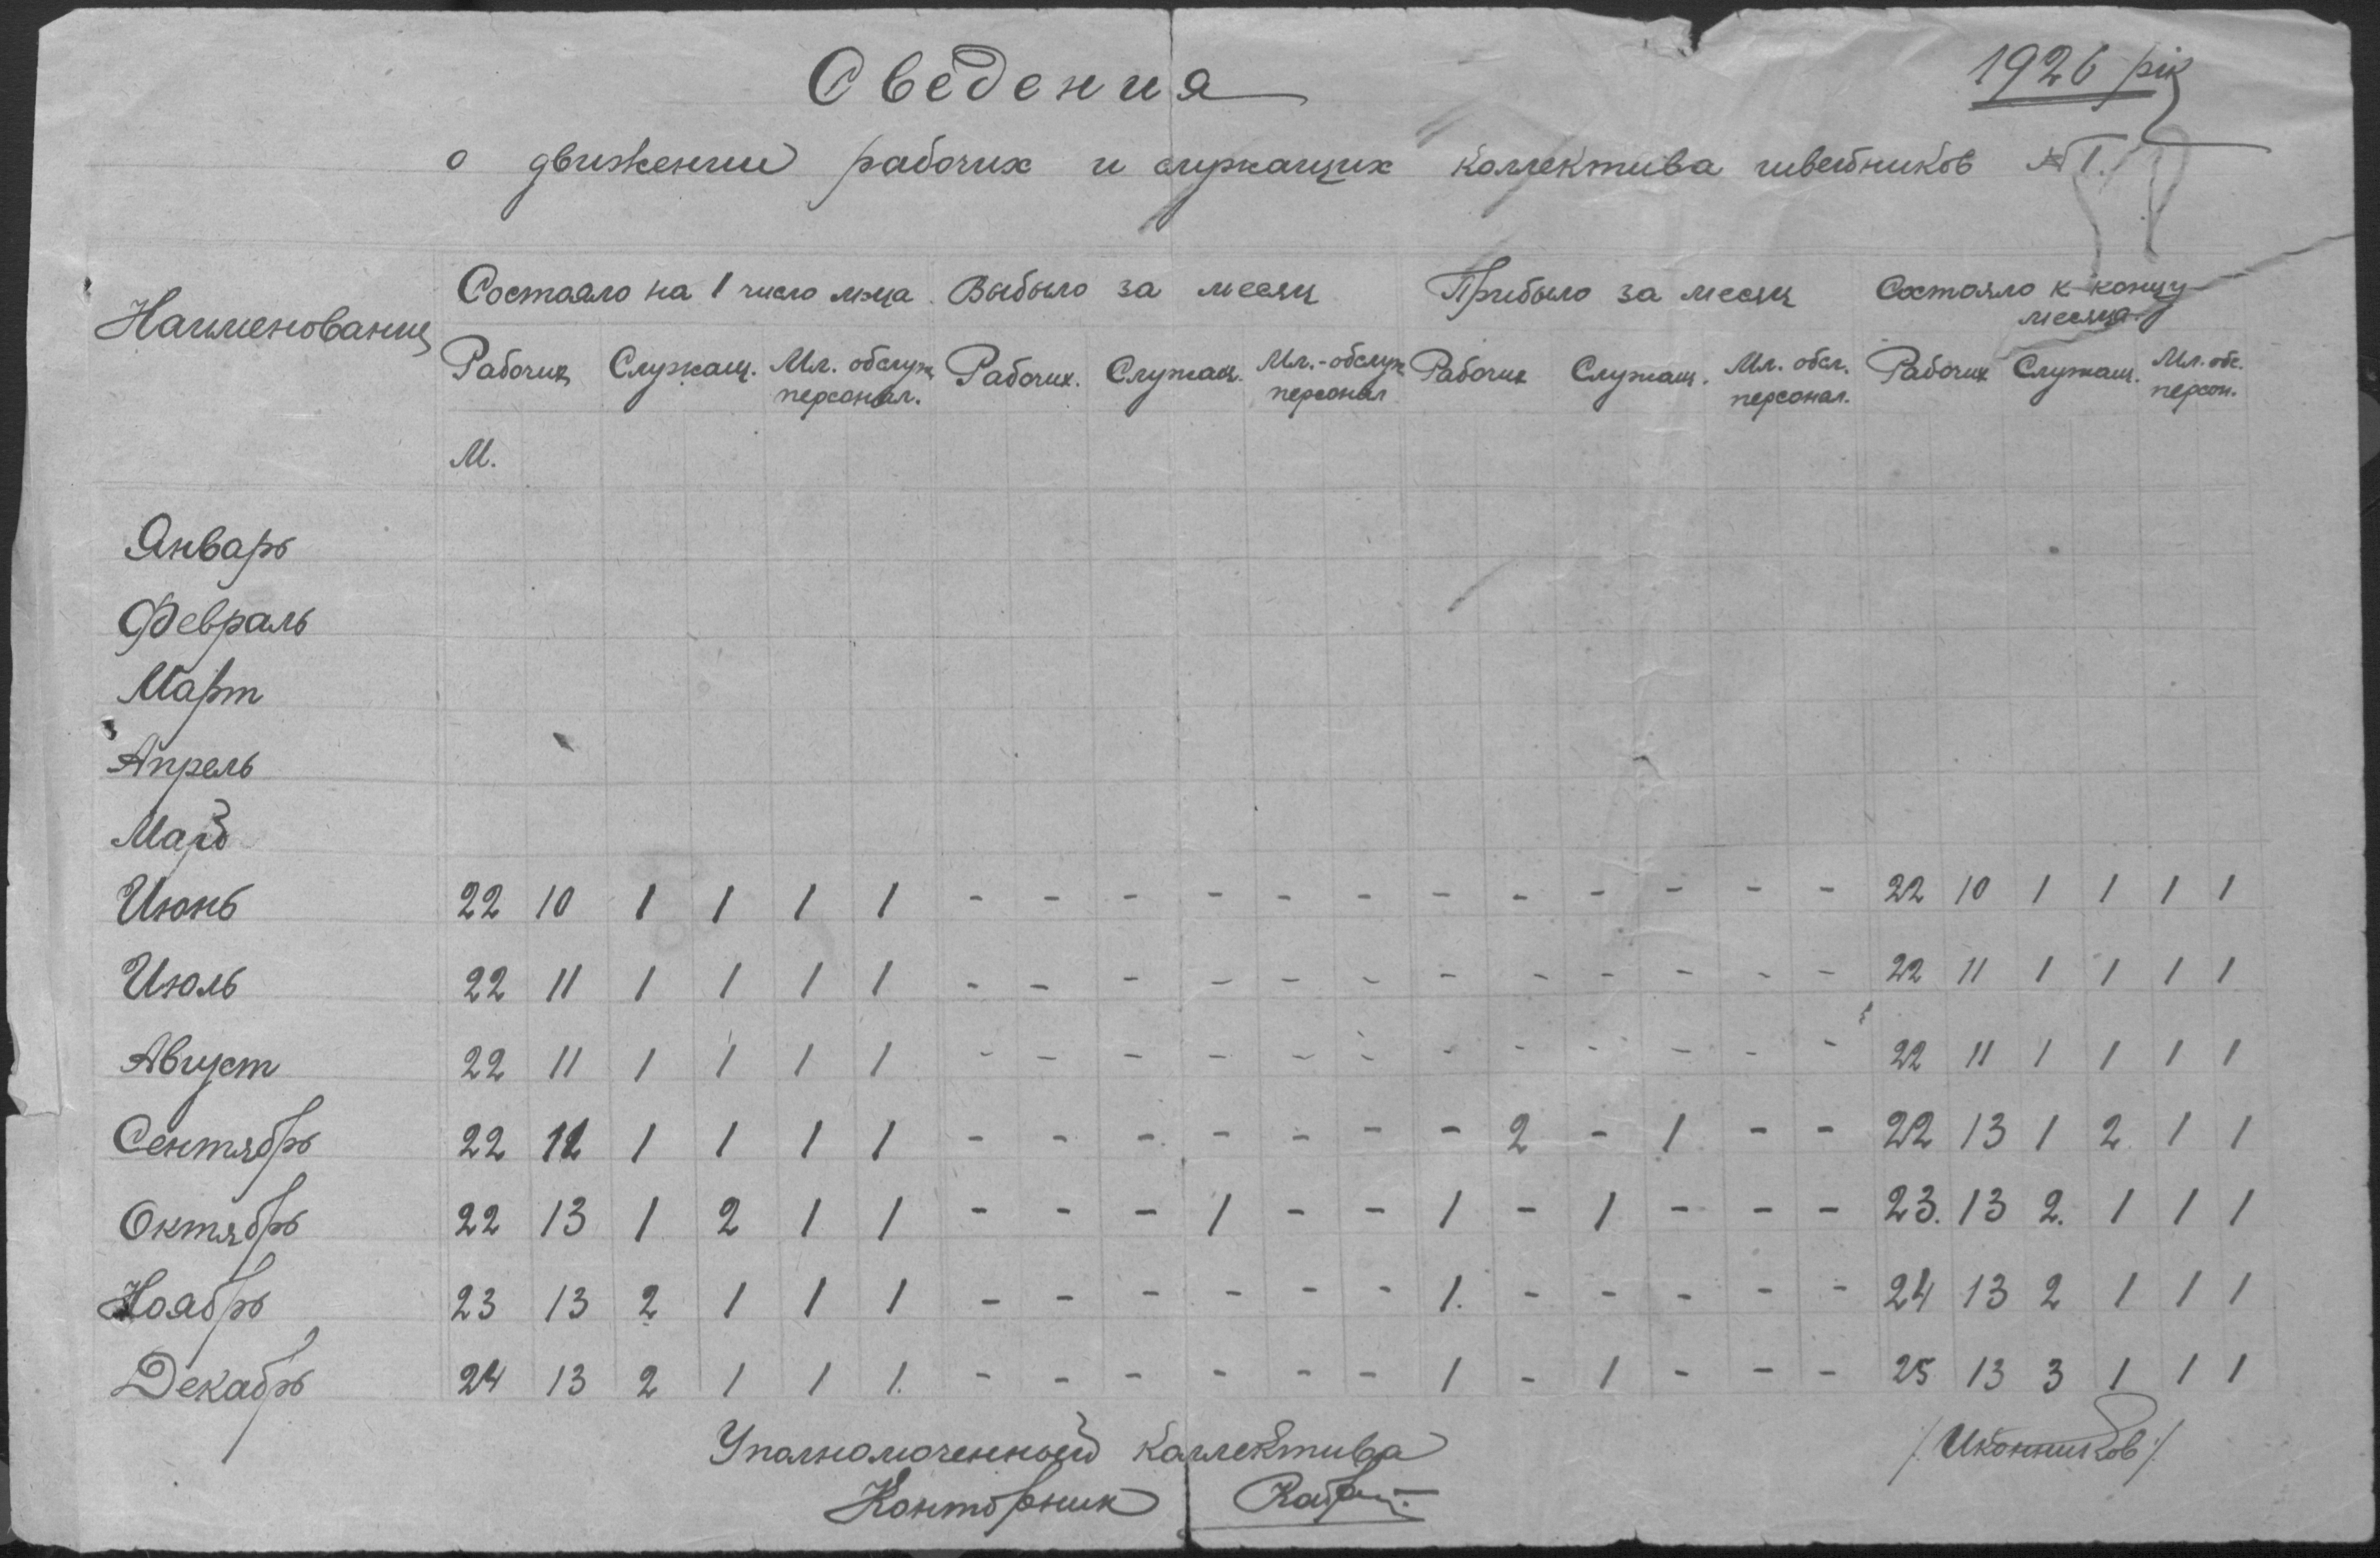 Сведения
1926 рік
о движении рабочих и служащих коллектива швейников №1.
Наименование Состояло на 1 число м-ца Выбыло за месяц Прибыло за месяц Состояло к концу месяца
Рабочих Служащ. Мл. обслуж персонал. Рабочих. Служащ. Мл.-обслуж персонал Рабочих Служащ. Мл. обсл. персонал. Рабочих Служащ. Мл. обс. персон.
М.
Январь
Февраль
Март
Апрель
Май
Июнь 22 10 1 1 1 1 - - - - - - - - - - - - 22 10 1 1 1 1
Июль 22 11 1 1 1 1 - - - - - - - - - - - - 22 11 1 1 1 1
Август 22 11 1 1 1 1 - - - - - - - - - - - - 22 11 1 1 1 1
Сентябрь 22 1 1 1 1 - - - - - - - 2 - 1 - - 22 13 1 2 1 1
Октябрь 22 13 1 2 1 1 - - - 1 - - 1 - 1 - - - 23. 13 2. 1 1 1
Ноябрь 23 13 2 1 1 1 - - - - - - 1. - - - - - 24 13 2 1 1 1
Декабрь 24 13 2 1 1 1. - - - - - - 1 - 1 - - - 25 13 3 1 1 1
Уполномоченный коллектива /Иконников/
Конторник